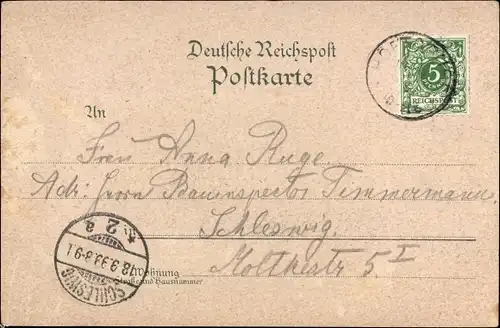 Deutsche Reichspost
Postkarte
5
REICHSPOST
An
Frau Anna Ruge.
Adr: Herrn Bauinspector Timmermann,
Schleswig.
Moltkestr 5 I
Wohnung
Straße und Hausnummer
SCHLESWIG
18.9.99.8-9
* 2 a